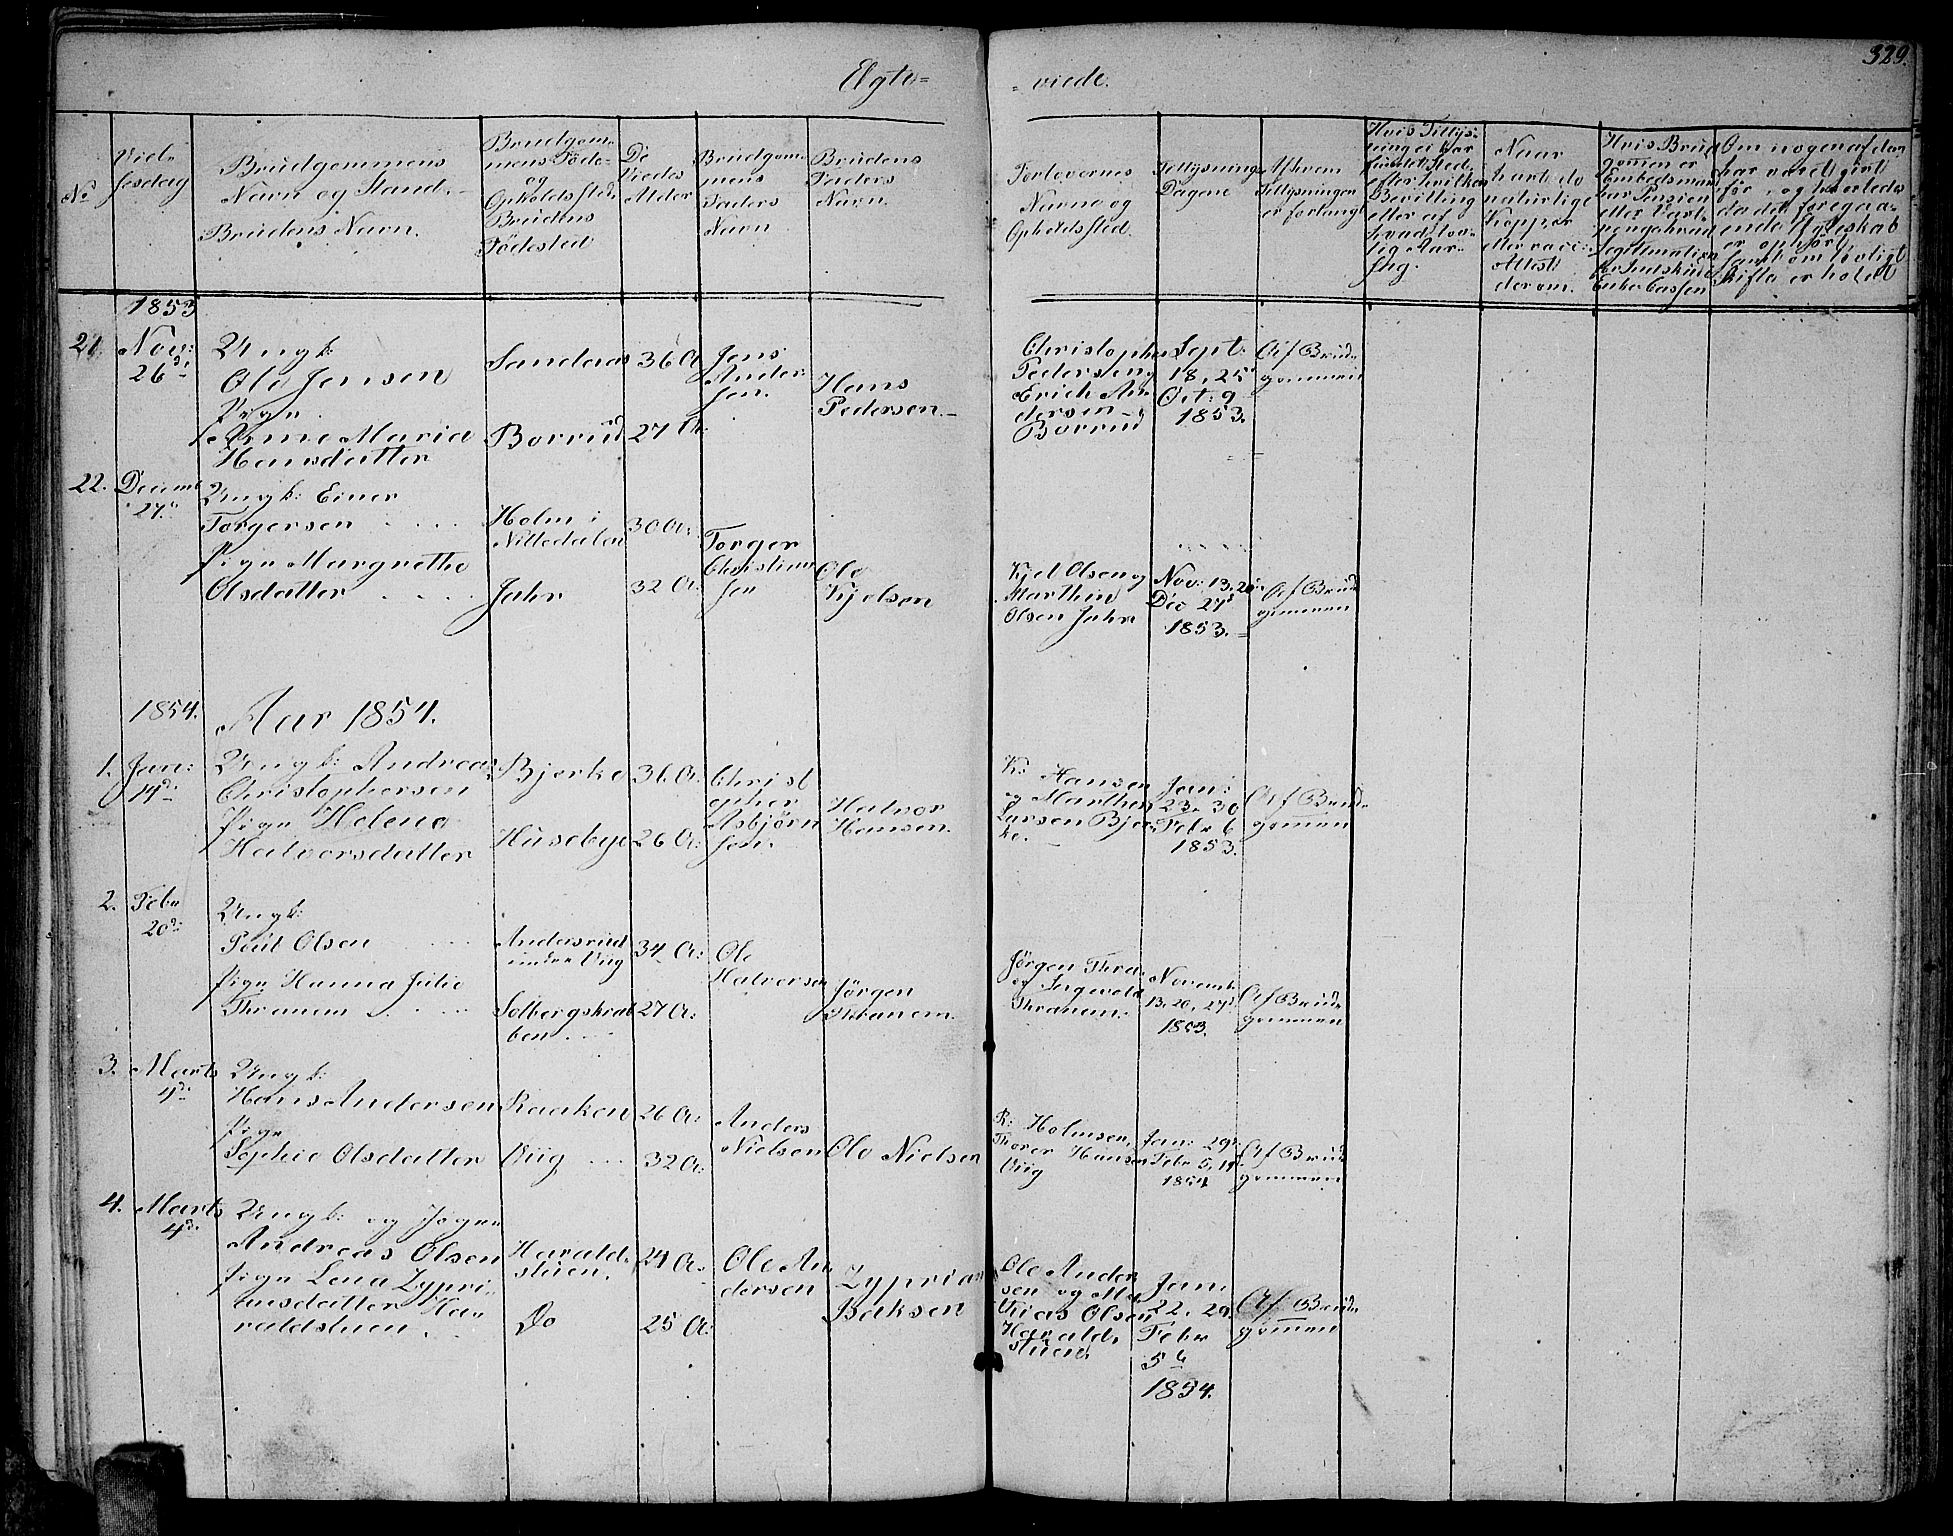 329.
Ægte= =viede.
No
Viel-
sesdag
Brudgommens
Navn og Stand.
Brudens Navn.
Brudgom-
mens Føde-
og
Opholdssted,
Brudens
Fødested
De
Viedes
Alder
Brudgom-
mens
Faders
Navn
Brudens
Faders
Navn.
Forlovernes
Navne og
Opholdssted.
Tillysnings
Dagene
Af hvem
Tillysningen
er forlangt
Hvis Tillys-
ning ei har
fundet Sted,
efter hvilken
Bevilling
eller af
hvad lov-
lig Aar-
sag.
Naar
havt de
naturlige
Kopper
eller vacc:
Attest
derom.
Hvis Brud
gommen er
Embedsmand
har Pension
eller
Legitimation
Enke Cassen
Om nogen af dem
har været gift
før, og hvorledes
da det foregaa-
ende Egteskab
er ophørt
samt om lovligt
Skifte er holdt
1853
21. Nov:
26de
Ungk:
Ole Jensen
Pige
Anne Maria
Hansdatter
Sanderas
Borrud
36 A
27 A:
Jens
Ander
sen.
Hans
Pedersen.
Christopher
Pedersen og
Erich An-
dersen
Borrud
Sept.
18, 25
Oct: 9
1853.
Af Brud-
gommen
22. Decemb
27de
Ungk: Einer
Torgersen
Pige Margrethe
Olsdatter
Holm i
Nittedalen
Jahr
30 A:
32 A:
Torger
Christian
sen
Ole
Kjelsen
Kjel Olsen og
Marthin
Olsen Jahr
Nov: 13, 20
Dec 27
1853.
Af Brud
gommen
1854. Aar 1854.
1. Jan:
14de
Ungk: Andreas
Christophersen
Pige Helena
Halvorsdatter
Bjerke
Husebye
36 A:
26 A:
Christ
opher
Asbjørn
sen.
Halvor
Hansen.
K: Hansen
og Marthin
Larsen Bjer-
ke.
Jan:
23. 30
Febr 6
1853.
Af Brud-
gommen
2. Febr
20de
Ungk:
Paul Olsen
Pige Hanna Julie
Thranem
Andersrud
under Viig
Solbergskrab
ben
34 A:
27 A:
Ole
Halversen
Jørgen
Thranem.
Jørgen Thra-
og Ingevald
Thranem.
Novemb
13, 20, 27
1853.
Af Brud-
gommen
3. Marts
4de
Ungk:
Hans Andersen
Pige
Sophie Olsdatter
Raaken
Viig
26 A:
32 A:
Anders
Nielsen
Ole Nielsen
R: Holmsen,
Thorer Hansen
Viig
Jan: 29
Febr 5, 19
1854
Af Brud-
gommen
4. Marts
4de
Ungk: og
Andreas Olsen
Pige Lena Zypri-
ansdatter Ha-
raldstuen.
Harald-
stuen.
Do
24 A:
25 A:
Ole An
dersen
Zyprian
Baksen
Ole Ander
sen og Ma
thias Olsen
Harald-
stuen
Jan:
22, 29
Febr
5
1854.
Af Brud-
gommen